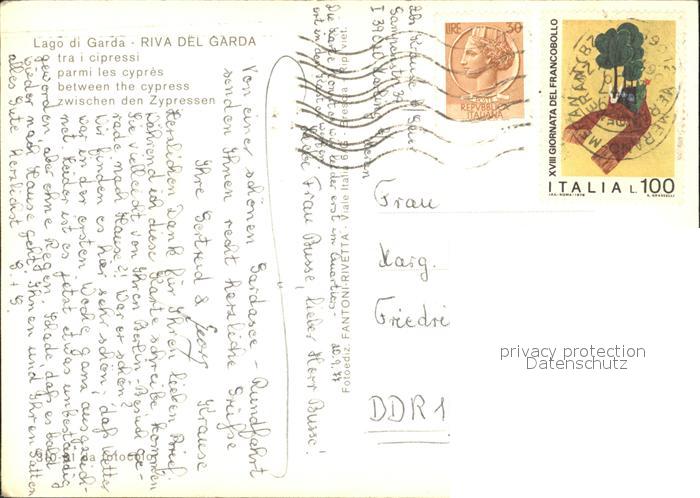 Lago di Garda - RIVA DEL GARDA
tra i cipressi
parmi les cyprès
between the cypress
zwischen den Zypressen
LIRE 30
POSTE
REPUBBLICA
ITALIANA
XVIII GIORNATA DEL FRANCOBOLLO
ITALIA L.100
Fotoediz. FIANTONI-RIVETTA - Viale Italia
20.9.77
Liebe Frau Busse, lieber Herr Busse!
Von einer schönen Gardasee-Rundfahrt
senden Ihnen recht herzliche Grüße
Ihre Gertrud & Georg Krause
Herzlichen Dank für Ihren lieben Brief.
Während ich diese Karte schreibe, kommen
Sie vielleicht von Ihrem Berlin-Besuch ge-
rade nach Hause?! War er schön?
Wir finden es hier sehr schön; daß Wetter
war in der ersten Woche ganz ausgezeich-
net. Leider ist es jetzt etwas unbeständig
geworden aber ohne Regen. Schade daß es bald
wieder nach Hause geht. Ihnen und Ihrem Gatten
alles Gute herzlichst G + G.
Frau
Marg.
Friedri
DDR 1
privacy protection
Datenschutz